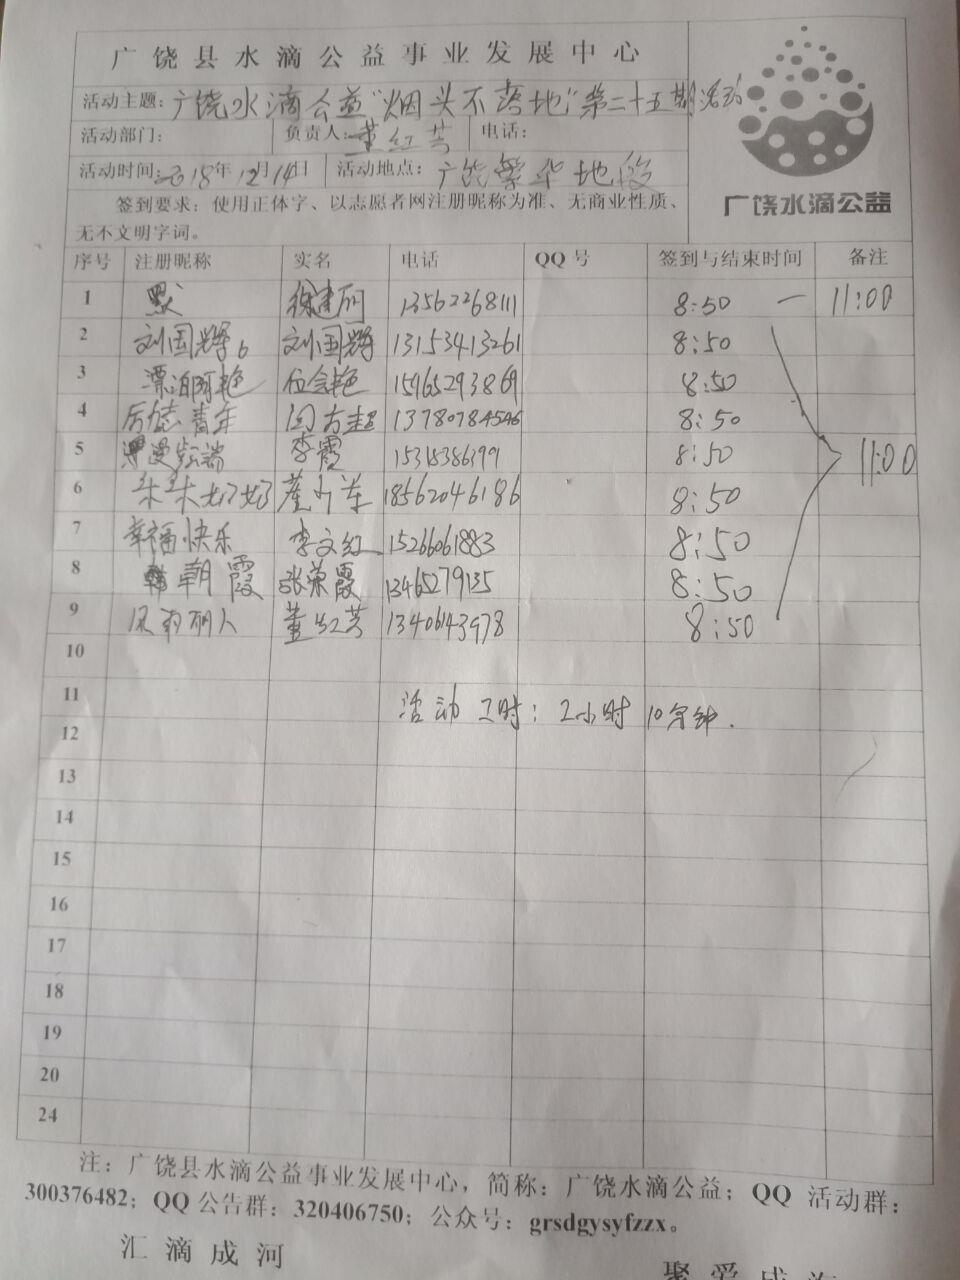 广饶县水滴公益事业发展中心
活动主题:广饶水滴公益"烟头不落地"第二十五期活动
活动部门: 负责人:董红芸 电话:
活动时间:2018年12月14日 活动地点:广饶繁华地段
签到要求:使用正体字、以志愿者网注册昵称为准、无商业性质、
无不文明字词。
广饶水滴公益
序号 注册昵称 实名 电话 QQ号 签到与结束时间 备注
1 默 徐建丽 13562268111 8:50 — 11:00
2 刘国辉6 刘国辉 13153413261 8:50
3 漂泊阿艳 伍会艳 15965293869 8:50
4 厉志青年 闫方超 13780784546 8:50
5 漫步云端 李霞 15318386399 8:50 11:00
6 朵朵 18562046186 8:50
7 幸福快乐 李文红 15266061883 8:50
8 朝霞 张荣霞 13465279135 8:50
9 风雨丽人 董红芸 13406143978 8:50
10
11 活动工时:2小时10分钟.
12
13
14
15
16
17
18
19
20
24
注:广饶县水滴公益事业发展中心,简称:广饶水滴公益;QQ 活动群:
300376482;QQ公告群:320406750;公众号:grsdgysyfzzx。
汇滴成河
聚爱成海